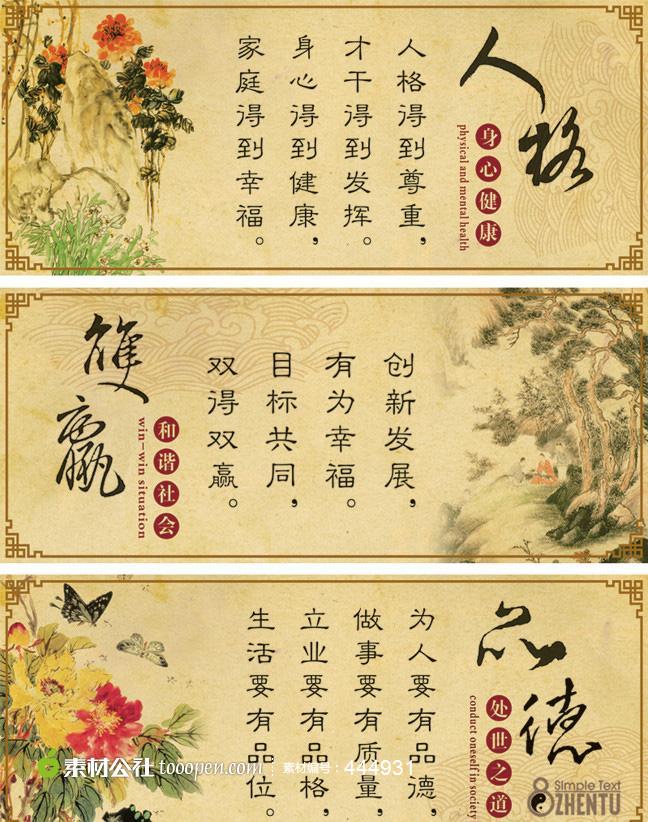 人格
身心健康
physical and mental health
人格得到尊重，
才干得到发挥。
身心得到健康，
家庭得到幸福。
雙贏
和谐社会
win-win situation
创新发展，
有为幸福。
目标共同，
双得双赢。
品德
处世之道
conduct oneself in society
为人要有品德，
做事要有质量，
立业要有品格，
生活要有品位。
素材公社 tooopen.com 素材编号：444931
Simple Text
ZHENTU